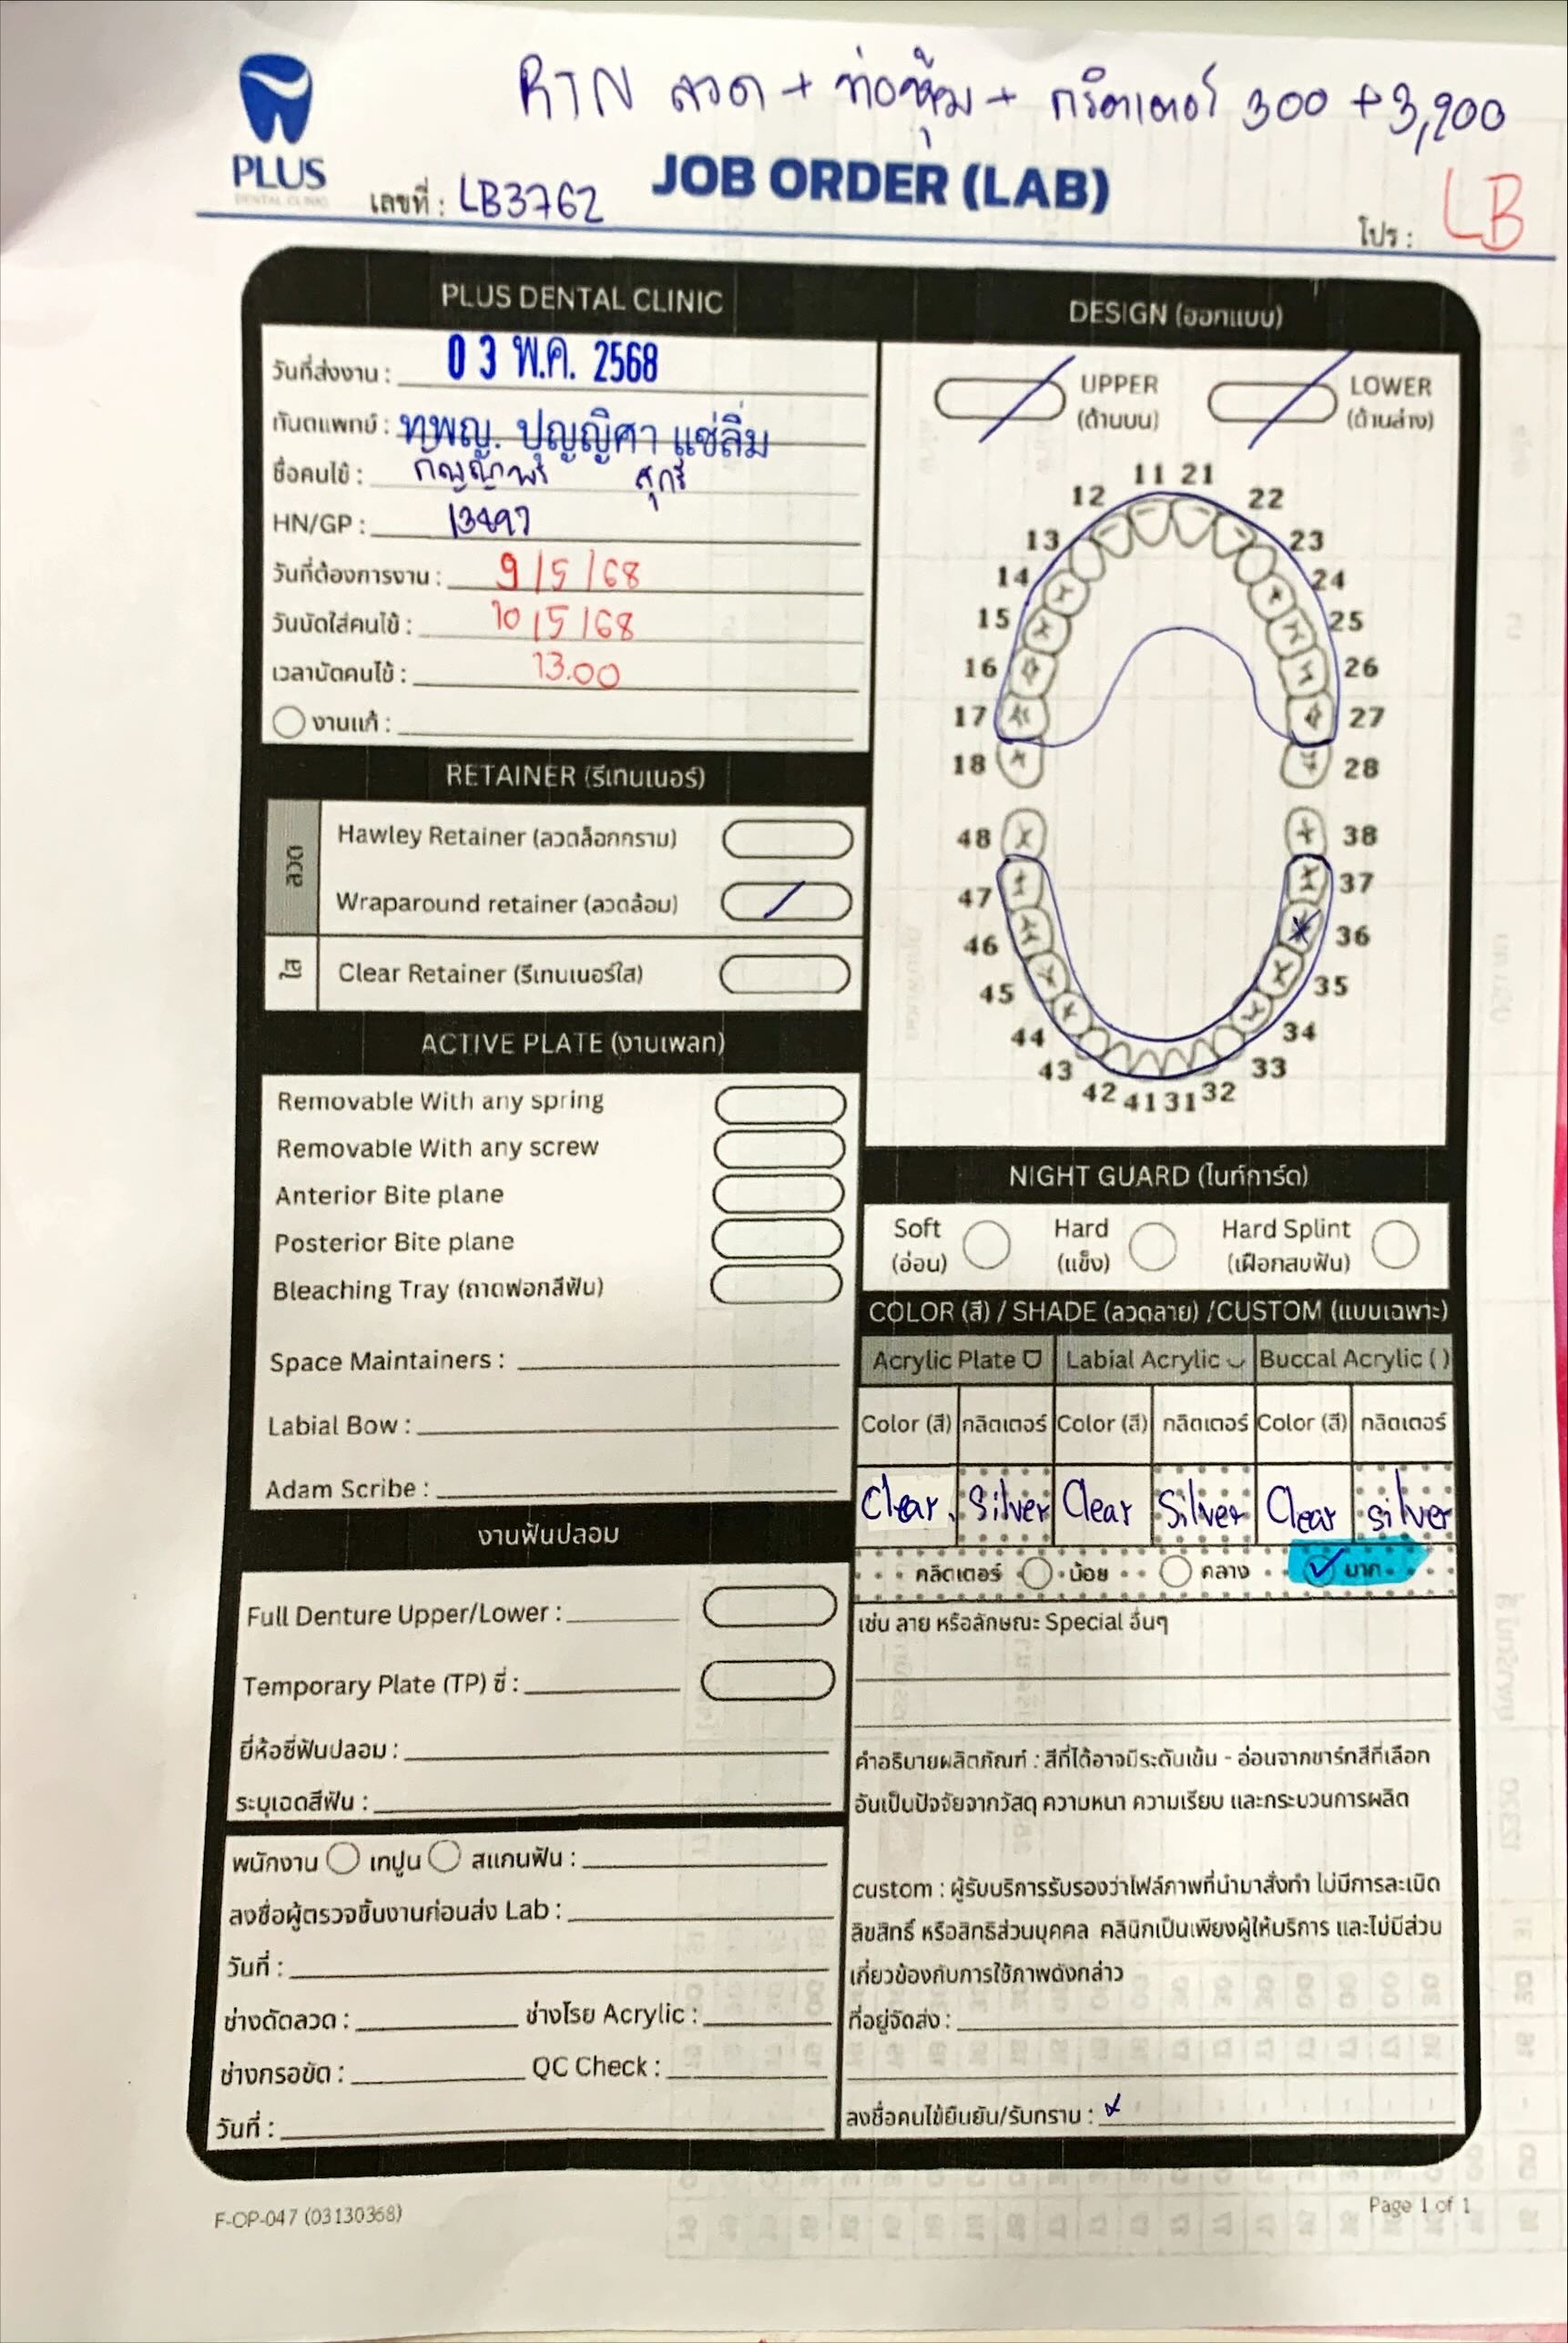 RTN ลวด + ท่อหุ้ม + กริตเตอร์ 300 + 3,900
PLUS
DENTAL CLINIC
เลขที่ : LB3762
JOB ORDER (LAB)
โปร : LB
PLUS DENTAL CLINIC
วันที่ส่งงาน : 03 พ.ค. 2568
ทันตแพทย์ : ทพญ. ปุญญิศา แซ่ลิ่ม
ชื่อคนไข้ : กัญญาพร สุกรี
HN/GP : 13497
วันที่ต้องการงาน : 9/5/68
วันนัดใส่คนไข้ : 10/5/68
เวลานัดคนไข้ : 13.00
งานแก้ :
RETAINER (รีเทนเนอร์)
ลวด
Hawley Retainer (ลวดล็อกกราม)
Wraparound retainer (ลวดล้อม)
ใส
Clear Retainer (รีเทนเนอร์ใส)
ACTIVE PLATE (งานเพลท)
Removable With any spring
Removable With any screw
Anterior Bite plane
Posterior Bite plane
Bleaching Tray (ถาดฟอกสีฟัน)
Space Maintainers :
Labial Bow :
Adam Scribe :
งานฟันปลอม
Full Denture Upper/Lower :
Temporary Plate (TP) ซี่ :
ยี่ห้อซี่ฟันปลอม :
ระบุเฉดสีฟัน :
พนักงาน เทปูน สแกนฟัน :
ลงชื่อผู้ตรวจชิ้นงานก่อนส่ง Lab :
วันที่ :
ช่างดัดลวด : ช่างโรย Acrylic :
ช่างกรอขัด : QC Check :
วันที่ :
DESIGN (ออกแบบ)
UPPER LOWER
(ด้านบน) (ด้านล่าง)
11 21
12 22
13 23
14 24
15 25
16 26
17 27
18 28
48 38
47 37
46 36
45 35
44 34
43 33
42 41 31 32
NIGHT GUARD (ไนท์การ์ด)
Soft Hard Hard Splint
(อ่อน) (แข็ง) (เฝือกสบฟัน)
COLOR (สี) / SHADE (ลวดลาย) /CUSTOM (แบบเฉพาะ)
Acrylic Plate Labial Acrylic Buccal Acrylic ( )
Color (สี) กลิตเตอร์ Color (สี) กลิตเตอร์ Color (สี) กลิตเตอร์
Clear. Silver Clear Silver Clear silver
คลิตเตอร์ น้อย กลาง มาก
เช่น ลาย หรือลักษณะ Special อื่นๆ
คำอธิบายผลิตภัณฑ์ : สีที่ได้อาจมีระดับเข้ม - อ่อนจากชาร์ทสีที่เลือก
อันเป็นปัจจัยจากวัสดุ ความหนา ความเรียบ และกระบวนการผลิต
custom : ผู้รับบริการรับรองว่าไฟล์ภาพที่นำมาสั่งทำ ไม่มีการละเมิด
ลิขสิทธิ์ หรือสิทธิส่วนบุคคล คลินิกเป็นเพียงผู้ให้บริการ และไม่มีส่วน
เกี่ยวข้องกับการใช้ภาพดังกล่าว
ที่อยู่จัดส่ง :
ลงชื่อคนไข้ยืนยัน/รับทราบ :
F-OP-047 (03130368)
Page 1 of 1